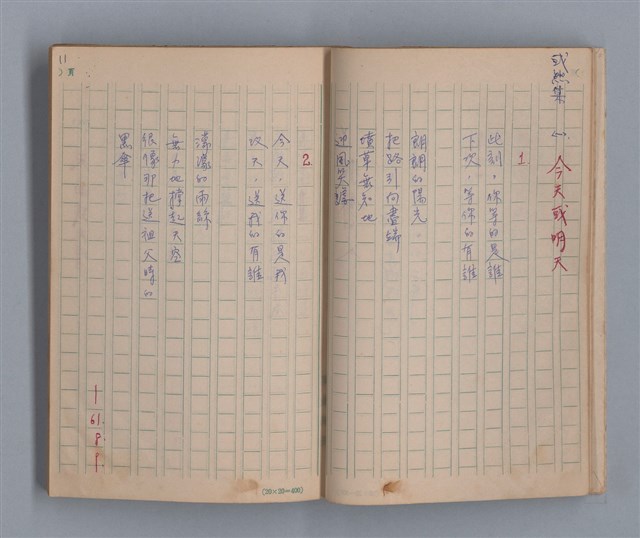 或然集
㈠ 今天或明天
1.
此刻，你等的是誰
下次，等你的有誰
朗朗的陽光，
把路引向盡端
墳草無知地
迎風笑
2.
今天，送你的是我
次天，送我的有誰
濛濛的雨絲
無力地撐起天空
很像那把送祖父時的
黑傘
61. 9. 1.
11
頁
(20×20=400)